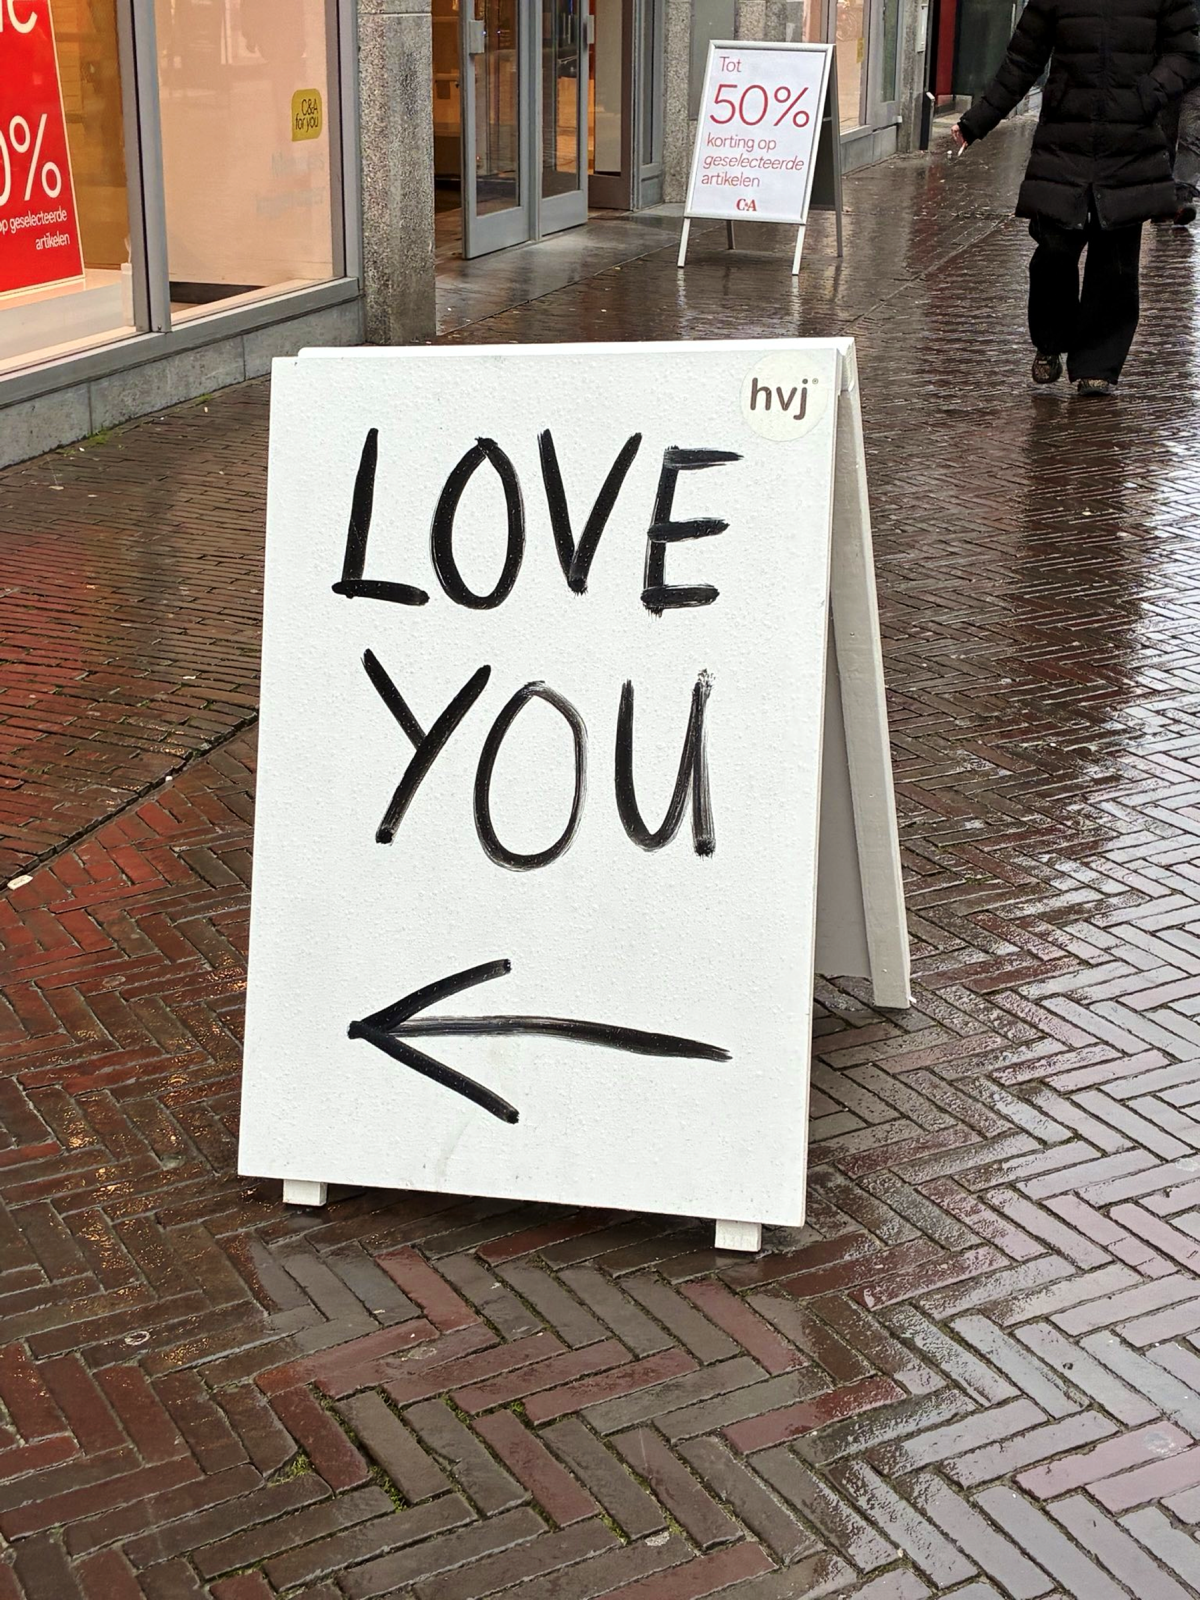 hvj®
LOVE
YOU
Tot
50%
korting op
geselecteerde
artikelen
C&A
C&A
for you
0%
op geselecteerde
artikelen